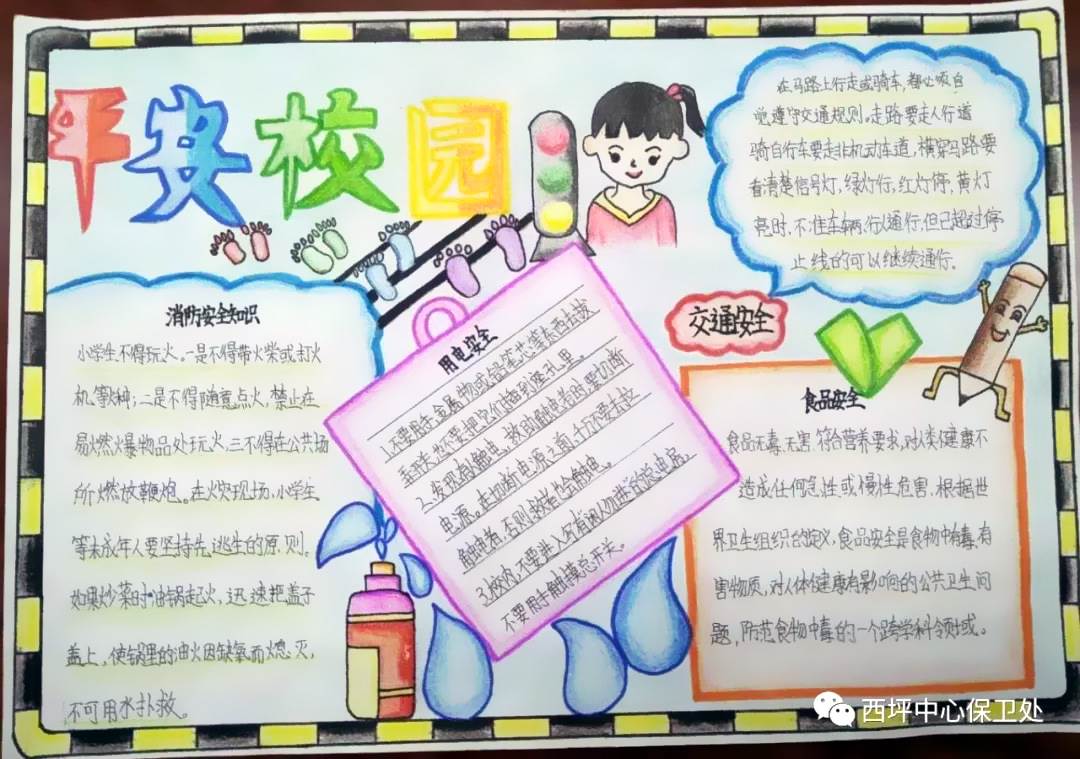 平安校园
在马路上行走或骑车,都必须自
觉遵守交通规则。走路要走人行道
骑自行车要走非机动车道,横穿马路要
看清楚信号灯,绿灯行,红灯停,黄灯
亮时,不准车辆、行人通行,但已超过停
止线的可以继续通行。
交通安全
消防安全知识
小学生不得玩火。一是不得带火柴或打火
机等火种;二是不得随意点火,禁止在
易燃爆物品处玩火,三不得在公共场
所燃放鞭炮。在火灾现场,小学生
等未成年人要坚持先逃生的原则。
如果炒菜时油锅起火,迅速把盖子
盖上,使锅里的油火因缺氧而熄灭,
不可用水扑救。
用电安全
1.不要用手、金属物或铅笔芯等东西去拨
弄开关,也不要把它们插到座孔里。
2.发现有人触电,救助触电者时要切断
电源。在切断电源之前,千万不要去拉
触电者,否则救护者也会触电。
3.校内,不要进入写有闲人勿进的总电房,
不要用手触摸总开关。
食品安全
食品无毒、无害,符合营养要求,对人体健康不
造成任何急性或慢性危害,根据世
界卫生组织的定义,食品安全是食物中有毒、有
害物质,对人体健康有影响的公共卫生问
题,防范食物中毒的一个跨学科领域。
西坪中心保卫处